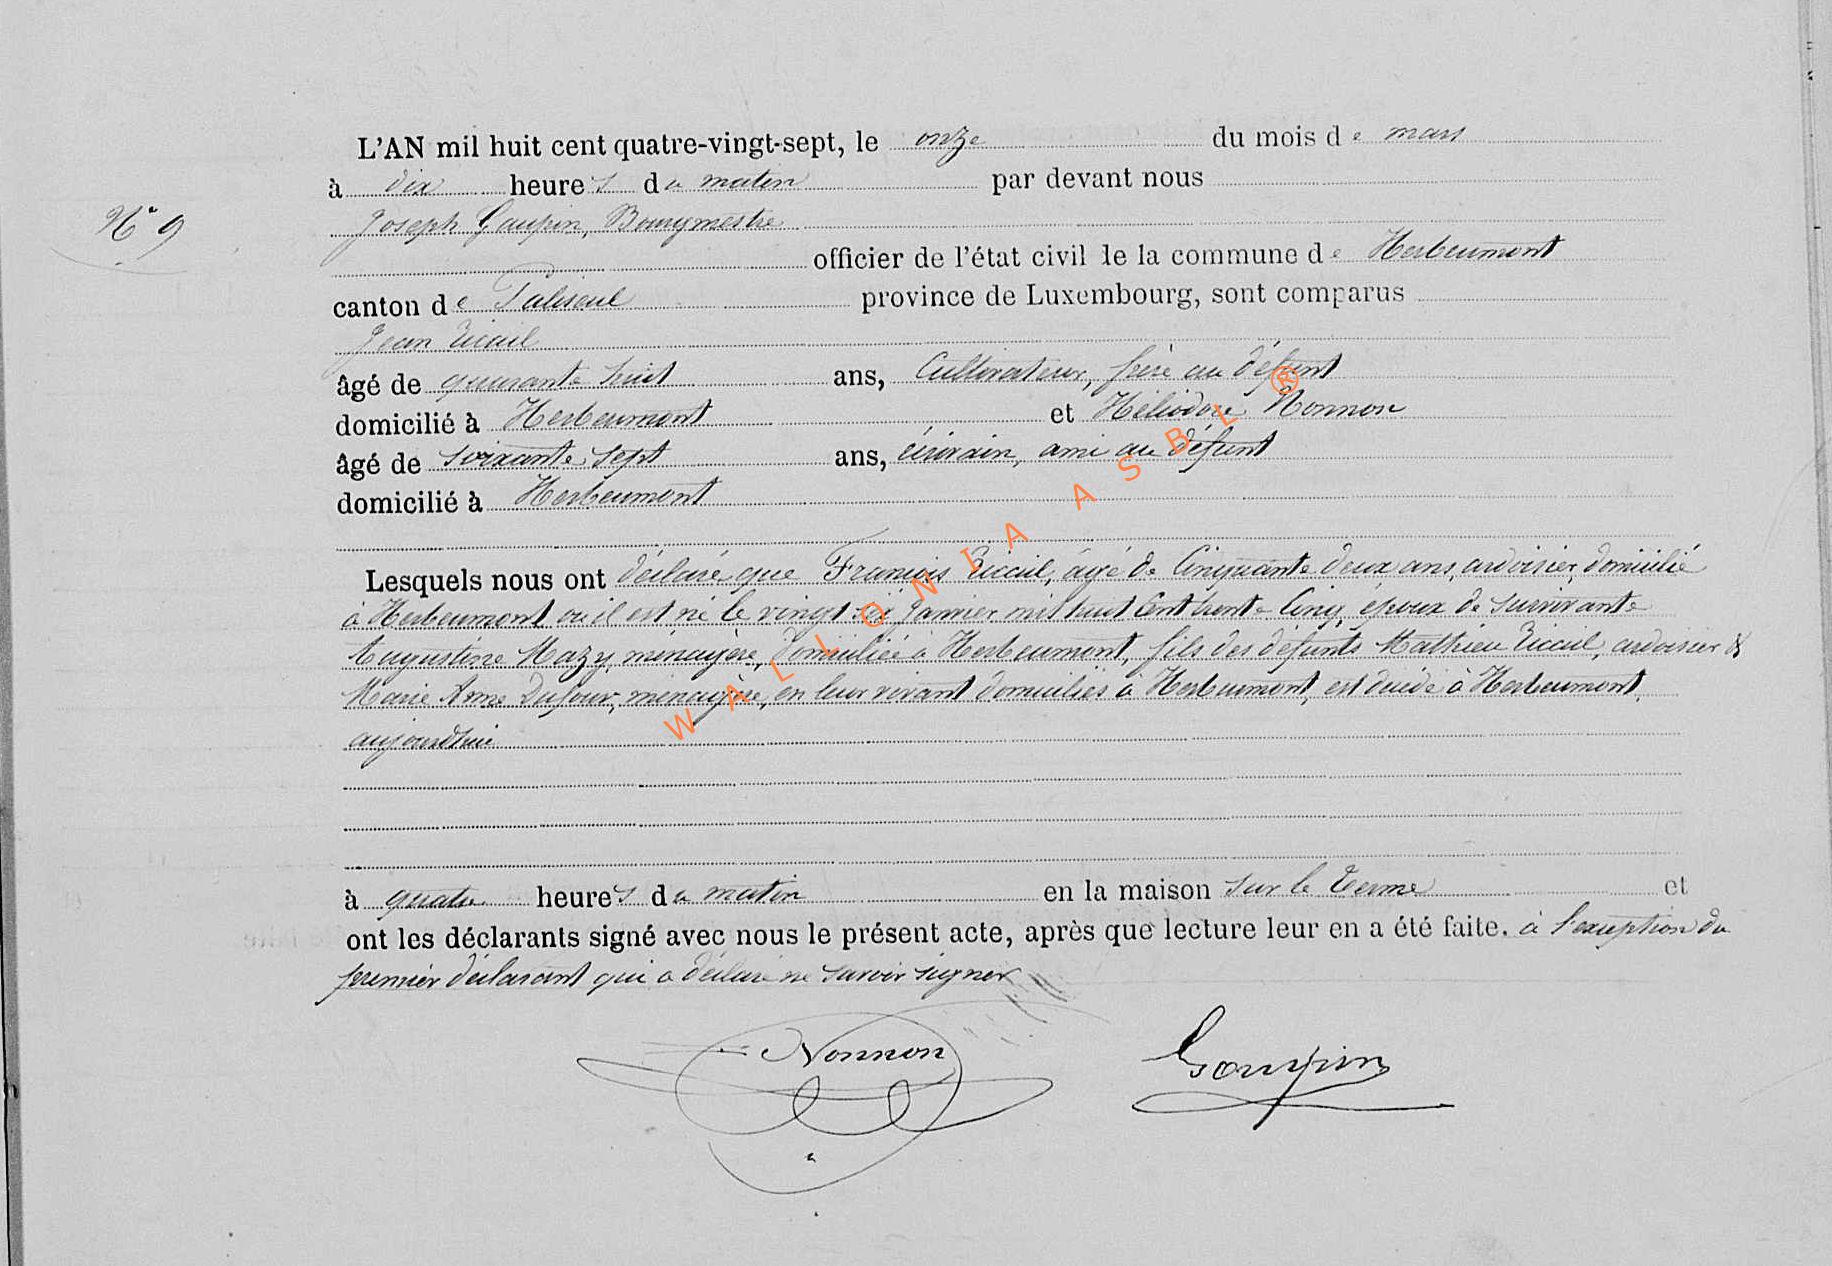 L'AN mil huit cent quatre-vingt-sept, le onze du mois de mars
à dix heures du matin par devant nous
N° 9
Joseph Goupin, Bourgmestre
officier de l'état civil de la commune de Herbeumont
canton de Paliseul province de Luxembourg, sont comparus
Jean
âgé de quarante huit ans, Cultivateur, frère au défunt
domicilié à Herbeumont et Héliodore Nonnon
âgé de soixante sept ans, écrivain, ami au défunt
domicilié à Herbeumont
Lesquels nous ont déclaré que François, âgé de Cinquante deux ans, ardoisier, domicilié
à Herbeumont où il est né le vingt six Janvier mil huit Cent trente Cinq, époux de survivante
Augustine Mazy, ménagère, domiciliée à Herbeumont, fils des défunts Mathieu, ardoisier &
Marie Anne Dufour, ménagère, en leur vivant domiciliés à Herbeumont, est décédé à Herbeumont,
aujourdhui
à quatre heures du matin en la maison sur le Terme et
ont les déclarants signé avec nous le présent acte, après que lecture leur en a été faite. à l'exception du
premier déclarant qui a déclaré ne savoir signer
Nonnon Goupin
WALLONIA ASBL ®